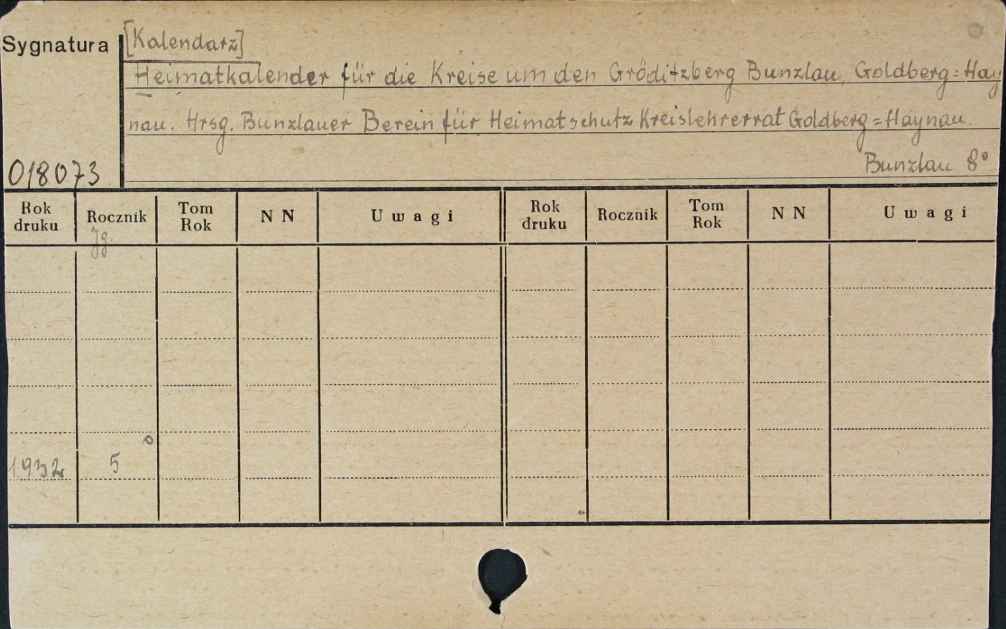 Sygnatura
[Kalendarz]
Heimatkalender für die Kreise um den Gröditzberg Bunzlau, Goldberg=Hay
nau. Hrsg. Bunzlauer Berein für Heimatschutz Kreislehrerrat Goldberg=Haynau.
018073
Bunzlau 8°
Rok druku Rocznik Tom Rok N N Uwagi Rok druku Rocznik Tom Rok N N Uwagi
Jg.
1932 5